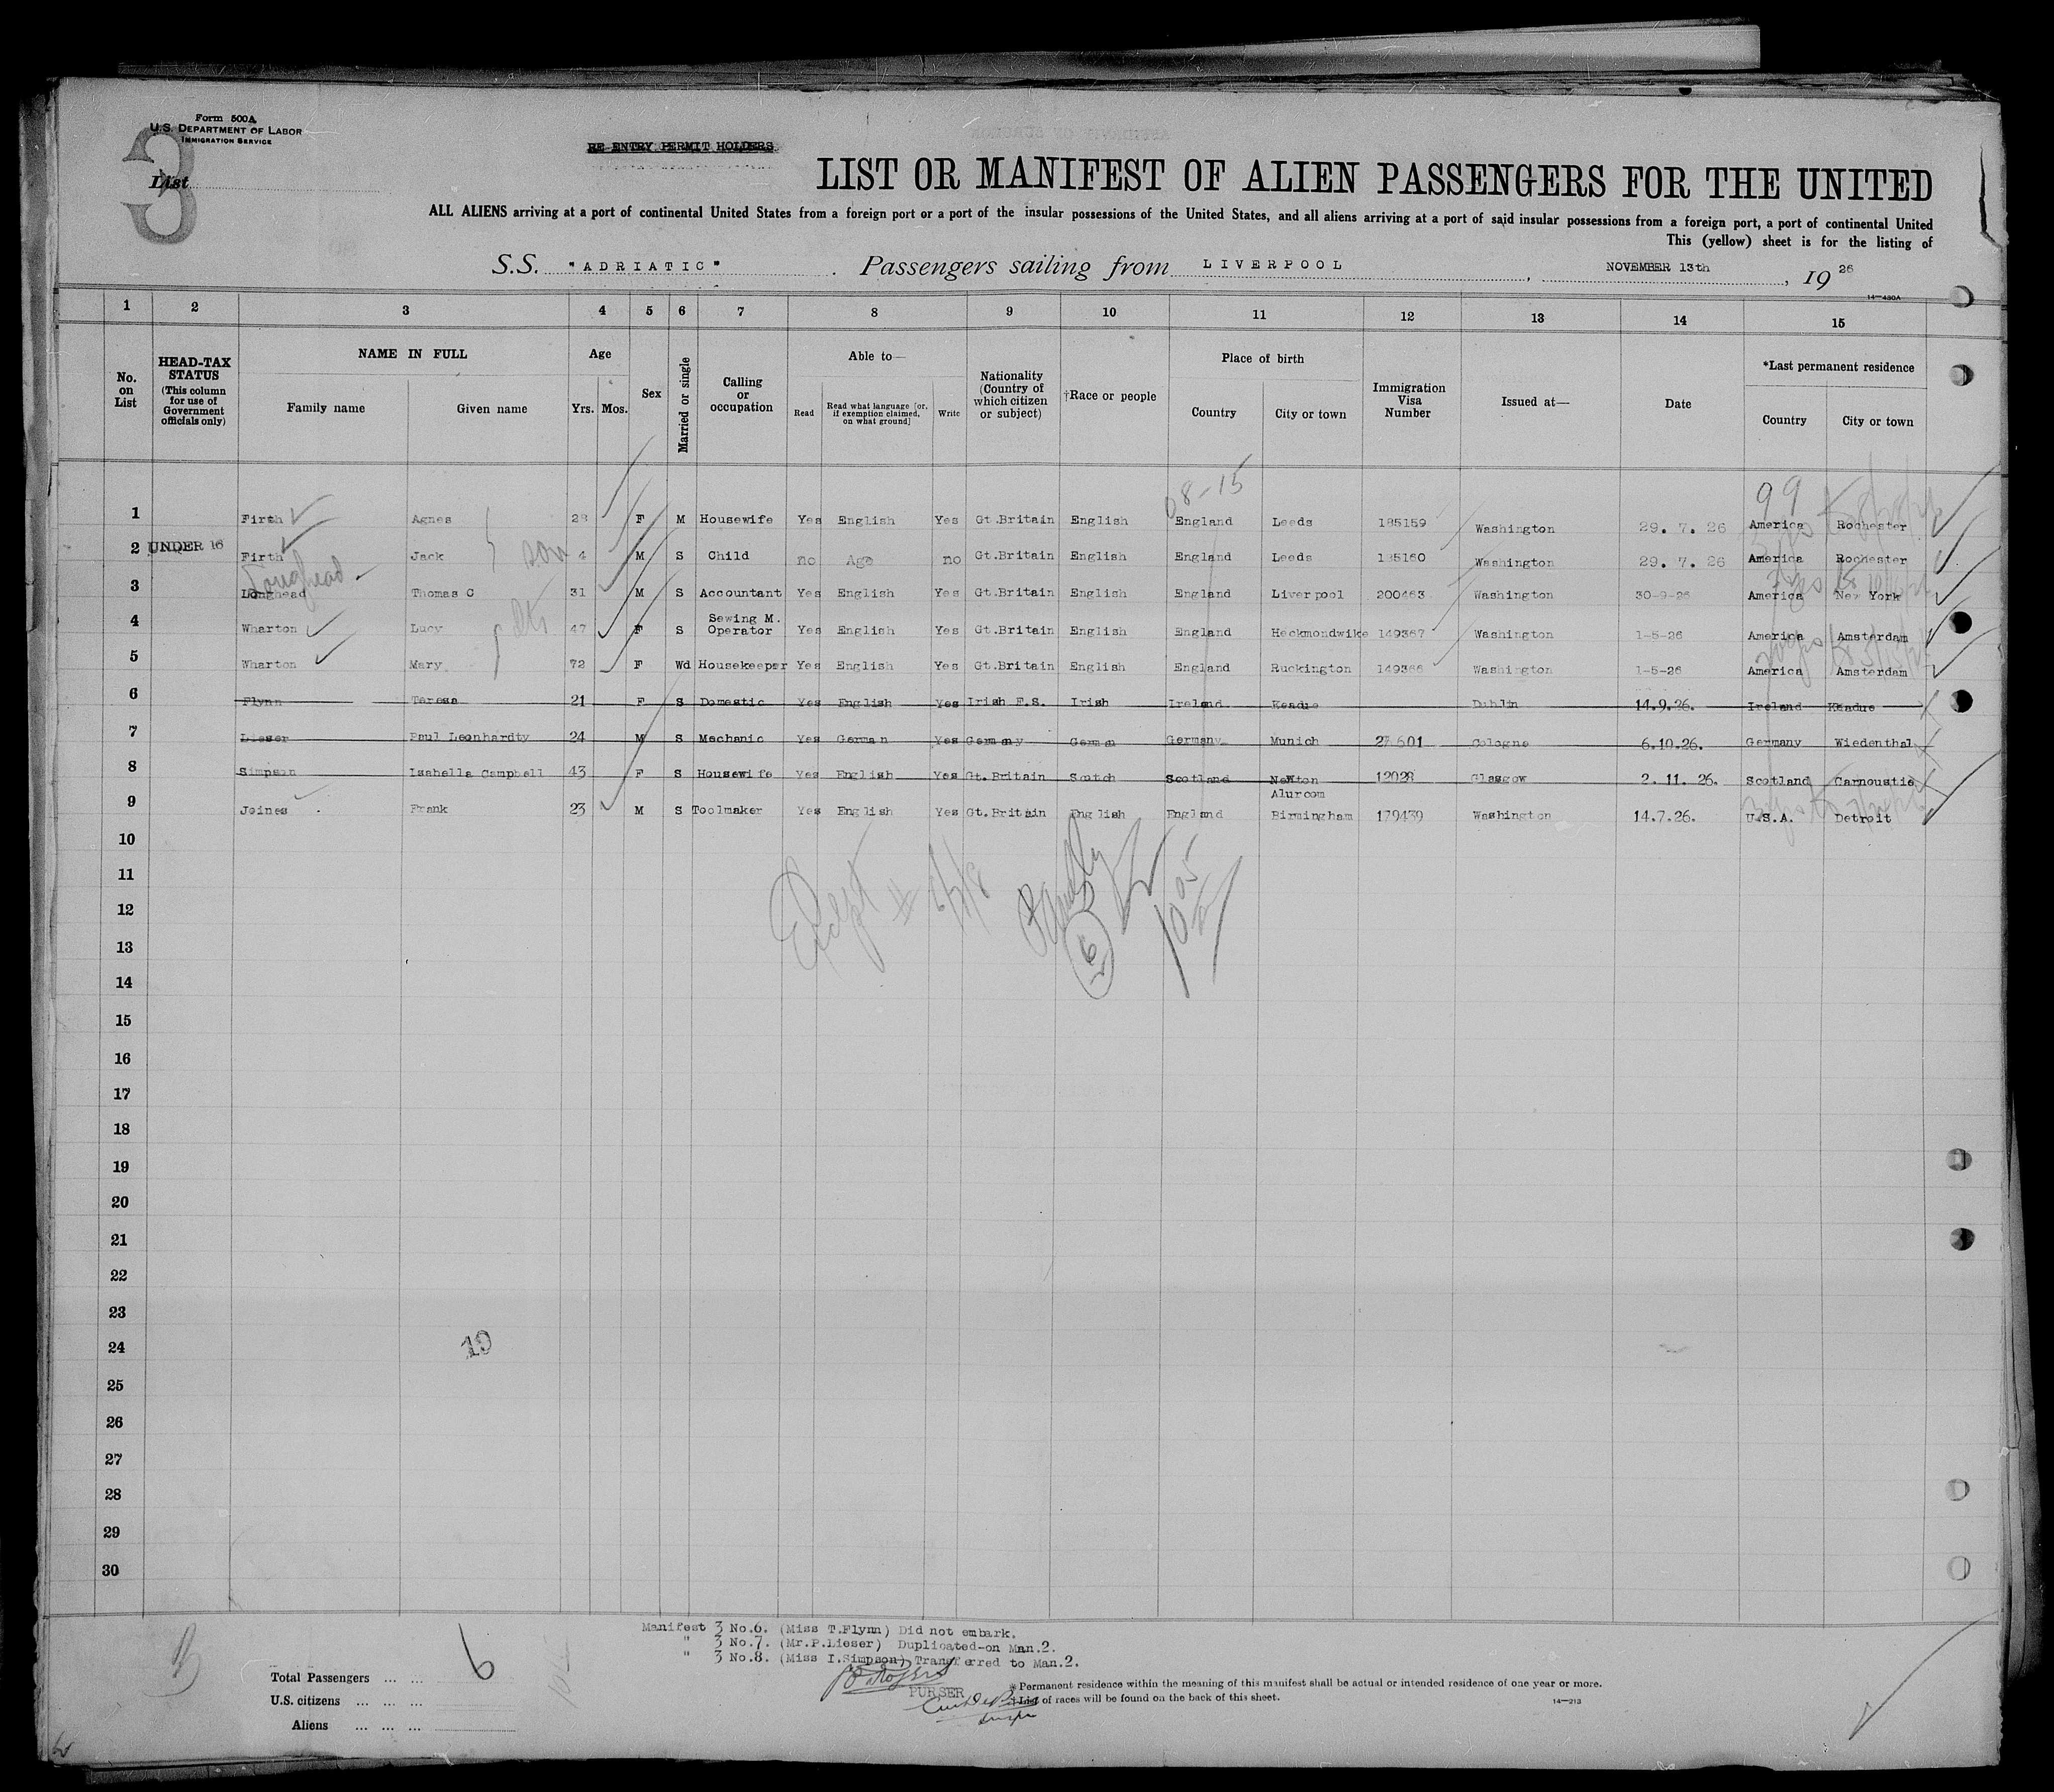 Form 500A
U.S. DEPARTMENT OF LABOR
IMMIGRATION SERVICE
3
List
RE-ENTRY PERMIT HOLDERS
LIST OR MANIFEST OF ALIEN PASSENGERS FOR THE UNITED
ALL ALIENS arriving at a port of continental United States from a foreign port or a port of the insular possessions of the United States, and all aliens arriving at a port of said insular possessions from a foreign port, a port of continental United
This (yellow) sheet is for the listing of
S.S. "ADRIATIC". Passengers sailing from LIVERPOOL, NOVEMBER 13th, 1926
14—430A
1 2 3 4 5 6 7 8 9 10 11 12 13 14 15
No. on List
HEAD-TAX STATUS (This column for use of Government officials only)
NAME IN FULL
Family name Given name
Age
Yrs. Mos.
Sex
Married or single
Calling or occupation
Able to—
Read
Read what language [or, if exemption claimed, on what ground]
Write
Nationality (Country of which citizen or subject)
†Race or people
Place of birth
Country City or town
Immigration Visa Number
Issued at—
Date
*Last permanent residence
Country City or town
08-15
99
1 Firth Agnes 28 F M Housewife Yes English Yes Gt.Britain English England Leeds 185159 Washington 29. 7. 26 America Rochester
2 UNDER 16 Firth Jack son 4 M S Child no Age no Gt.Britain English England Leeds 185160 Washington 29. 7. 26 America Rochester
Loughead
3 Longhead Thomas C 31 M S Accountant Yes English Yes Gt.Britain English England Liverpool 200463 Washington 30-9-26 America New York
4 Wharton Lucy 47 F S Sewing M. Operator Yes English Yes Gt.Britain English England Heckmondwike 149367 Washington 1-5-26 America Amsterdam
5 Wharton Mary 72 F Wd Housekeeper Yes English Yes Gt.Britain English England Ruckington 149366 Washington 1-5-26 America Amsterdam
6 Flynn Teresa 21 F S Domestic Yes English Yes Irish F.S. Irish Ireland Keadue Dublin 14.9.26. Ireland Keadue
7 Lieser Paul Leonhardty 24 M S Mechanic Yes German Yes Germany German Germany Munich 27601 Cologne 6.10.26. Germany Wiedenthal
8 Simpson Isabella Campbell 43 F S Housewife Yes English Yes Gt.Britain Scotch Scotland Newton Alurcom 12028 Glasgow 2. 11. 26. Scotland Carnoustie
9 Joines Frank 23 M S Toolmaker Yes English Yes Gt.Britain English England Birmingham 179439 Washington 14.7.26. U.S.A. Detroit
10
11
12
13
14
15
16
17
18
19
20
21
22
23
24
25
26
27
28
29
30
6
19
Manifest 3 No.6. (Miss T.Flynn) Did not embark.
" 3 No.7. (Mr.P.Lieser) Duplicated-on Man.2.
" 3 No.8. (Miss I.Simpson) Transferred to Man.2.
PURSER
Total Passengers ... ... 6
U.S. citizens ... ... ...
Aliens ... ... ...
* Permanent residence within the meaning of this manifest shall be actual or intended residence of one year or more.
† List of races will be found on the back of this sheet.
14—213